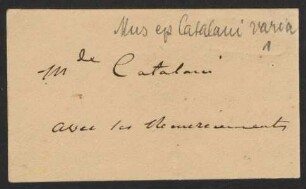 Mus ep Catalani varia
1
Mde Catalani
avec ses Remerciements